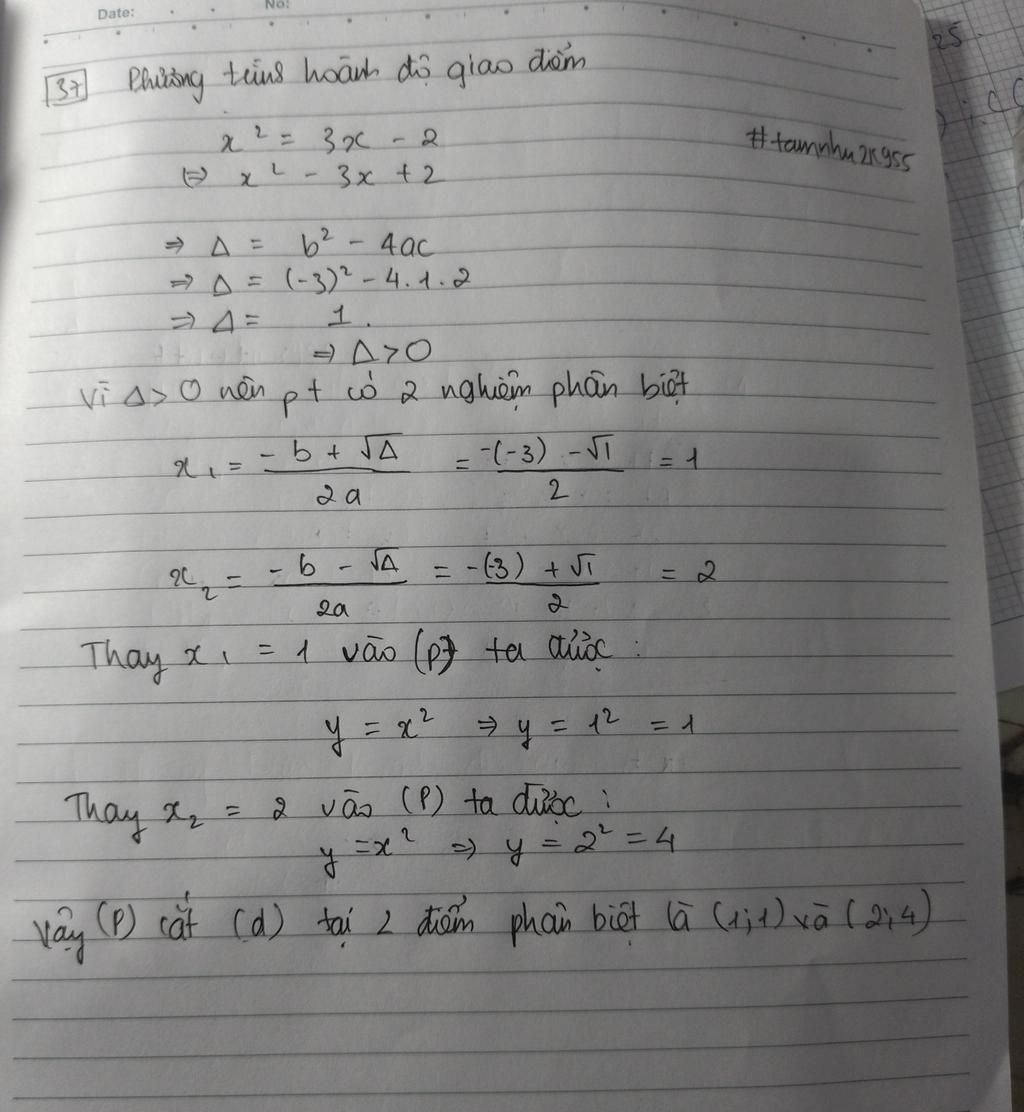 Date:
No:
37 Phương trình hoành độ giao điểm
x² = 3x - 2
#tamnhu2k955
⇔ x² - 3x + 2
⇒ Δ = b² - 4ac
⇒ Δ = (-3)² - 4.1.2
⇒ Δ = 1.
⇒ Δ > 0
Vì Δ > 0 nên pt có 2 nghiệm phân biệt
x₁ = (-b + √Δ)/2a = (-(-3) - √1)/2 = 1
x₂ = (-b - √Δ)/2a = (-(-3) + √1)/2 = 2
Thay x₁ = 1 vào (P) ta được :
y = x² ⇒ y = 1² = 1
Thay x₂ = 2 vào (P) ta được :
y = x² ⇒ y = 2² = 4
Vậy (P) cắt (d) tại 2 điểm phân biệt là (1;1) và (2;4)
25